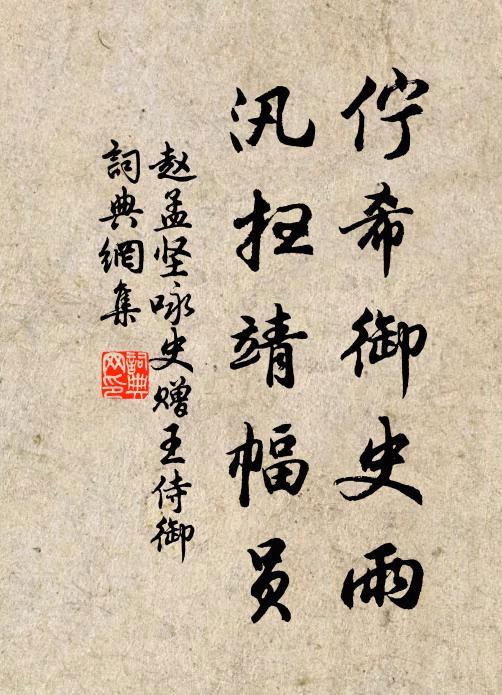 佇希御史雨
汛扫靖幅员
赵孟坚咏史赠王侍御
詞典網集
詞典网印